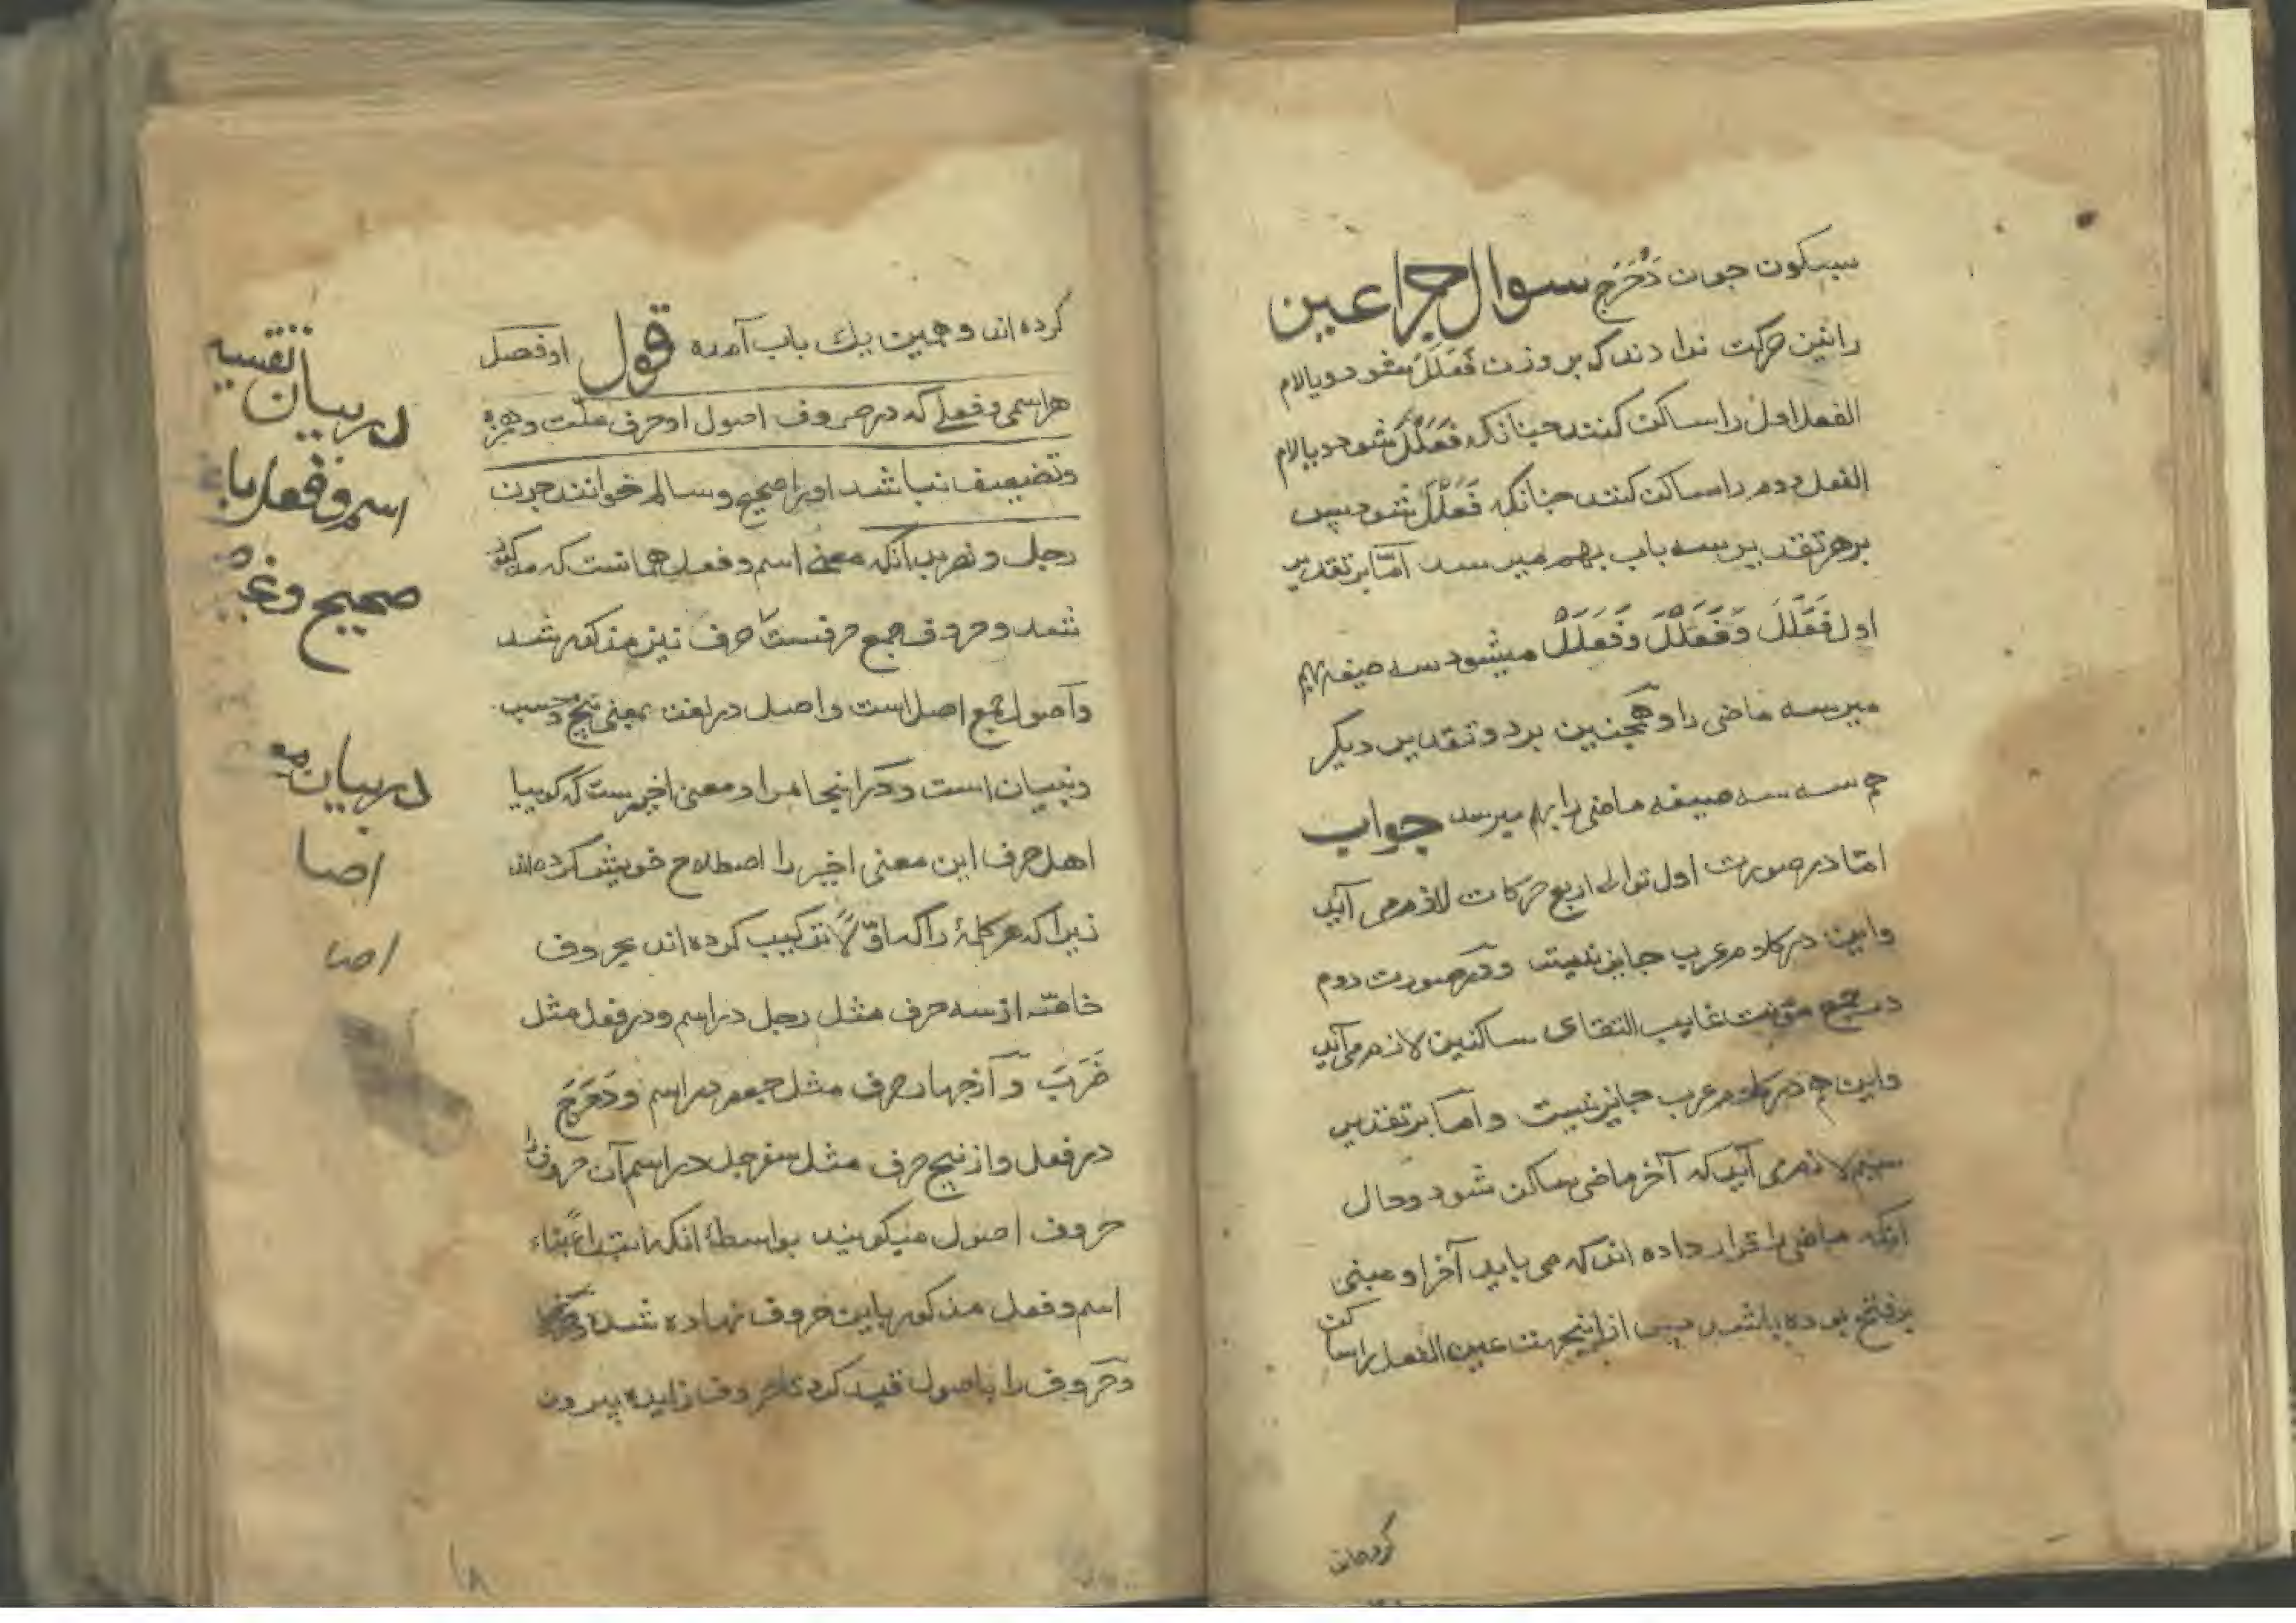 بسکون چون دَحْرَجَ سوال چرا عین
را نیز حرکت ندادند که بر وزن فَعَلَلَ شود و یا لام
الفعل اول را ساکت کنند چنانکه فَعَلْلَ شود و یا لام
الفعل دوم را ساکن کنند چنانکه فَعَلَلْ شود پس
بر هر تقدیر سه باب بهم میرسد امّا بر تقدیر
اول فَعَلَلَ وَفَعَلْلَ وَفَعَلَلْ میشود سه صیغه بهم
میرسد ماضی را و همچنین بر دو تقدیر دیگر
هم سه سه صیغه ماضی را بهم میرسد جواب
امّا در صورت اول توالی اربع حرکات لازم می آید
و این در کلام عرب جایز نیست و در صورت دوم
در جمع مؤنث غایب التقای ساکنین لازم می آید
و این هم در کلام عرب جایز نیست و امّا بر تقدیر
سیم لازم می آید که آخر ماضی ساکن شود و حال
آنکه ماضی را قرار داده اند که می باید آخر او مبنی
بر فتح بوده باشد پس از اینجهت عین الفعل را ساکن
کرده اند
کرده اند و همین یک باب آمده قول او فصل
هر اسمی و فعلی که در حروف اصول او حرف علّت و همزه
و تضعیف نباشد او را صحیح و سالم خوانند چون
رجل و نصر بدانکه معنی اسم و فعل همانست که مذکور
شد و حروف جمع حرفست حرف نیز مذکور شد
و اصول جمع اصل است و اصل در لغت بمعنی بیخ و سبب
و بنیان است و در اینجا مراد معنی اخیرست که گوییا
اهل صرف این معنی اخیر را اصطلاح خویش کرده اند
زیرا که هر کلمهٔ را که اوّلا ترکیب کرده اند بحروف
خاصّه از سه حرف مثل رجل در اسم و در فعل مثل
ضَرَبَ و از چهار حرف مثل جعفر در اسم و دَحْرَجَ
در فعل و از پنج حرف مثل سفرجل در اسم آن حروف را
حروف اصول میگویند بواسطهٔ آنکه ابتداءً بناء
اسم و فعل مذکور باین حروف نهاده شده
و حروف را باصول قید کرد تا حروف زایده بیرون
در بیان تقسیم
اسم و فعل با
صحیح و غیر
در بیان
اصا
اصا
۱۸